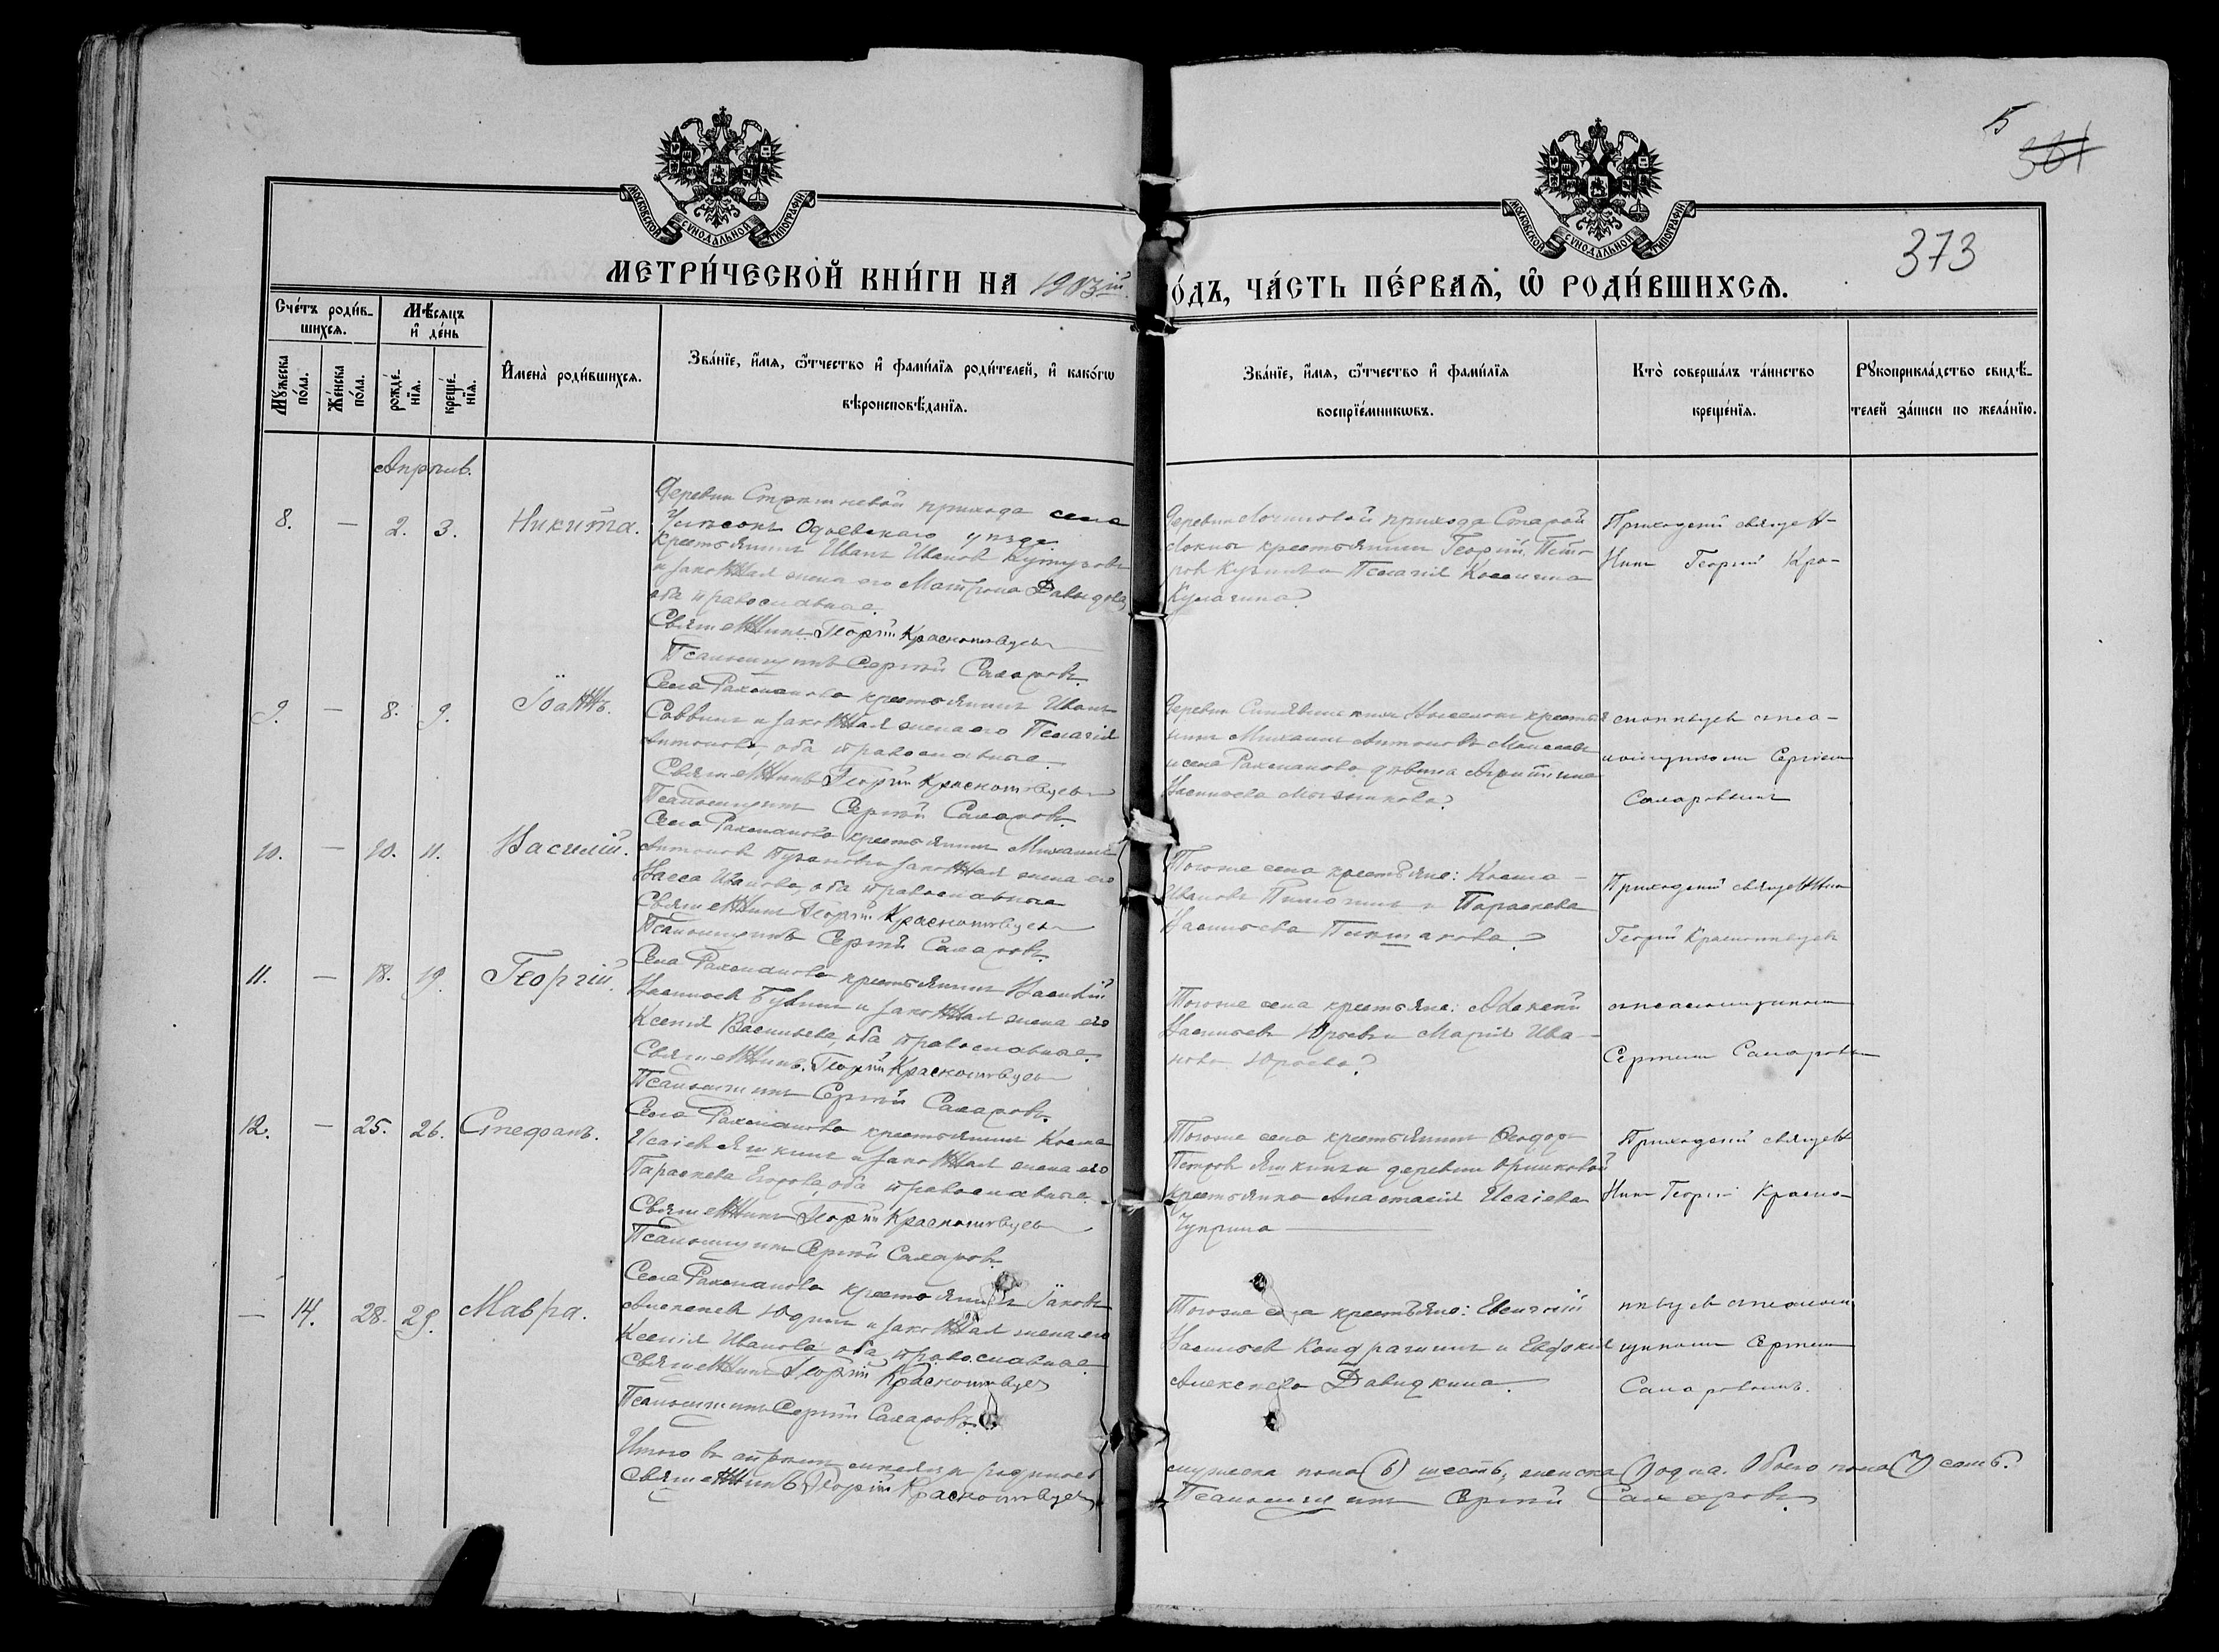 5
361
373
МОСКОВСКОЙ СѴНОДАЛЬНОЙ ТИПОГРАФІИ
МОСКОВСКОЙ СѴНОДАЛЬНОЙ ТИПОГРАФІИ
МЕТРИ́ЧЕСКОЙ КНИ́ГИ НА 1903ій
О́ДЪ, ЧА́СТЬ ПЕ́РВАѦ, Ѽ РОДИ́ВШИХСѦ.
Сче́тъ роди́в-
шихсѧ.
Мѣ́сѧцъ
и҆ де́нь
Мꙋ́жеска
по́ла.
Же́нска
по́ла.
рожде́-
нїѧ.
креще́-
нїѧ.
И҆мена̀ роди́вшихсѧ.
Зва́нїе, и҆́мѧ, ѻ҆́тчество и҆ фами́лїѧ роди́телей, и҆ како́гѡ
вѣроисповѣ́данїѧ.
Зва́нїе, и҆́мѧ, ѻ҆́тчество и҆ фами́лїѧ
воспрїе́мникѡвъ.
Кто̀ соверша́лъ та́инство
креще́нїѧ.
Рꙋкоприкла́дство свидѣ́-
телей за́писи по жела́нїю.
Апрѣль.
8. — 2. 3. Никита.
Деревни прихода села
Одоевскаго уѣзда
крестьянинъ Иванъ Иванов Кутузовъ
и законная жена его Матрона Давыдова,
оба православные.
Священникъ Георгій Краснопѣвцевъ
Псаломщикъ Сергѣй Сахаровъ.
Деревни прихода Старой
крестьянинъ Георгій Пет-
ров и Пелагія
Приходскій священ-
никъ Георгій Кра-
9. — 8. 9. Іоаннъ.
Села Рахманова крестьянинъ Иванъ
Саввинъ и законная жена его Пелагія
Антонова, оба православные.
Священникъ Георгій Краснопѣвцевъ
Псаломщикъ Сергѣй Сахаровъ.
Деревни крестья-
нинъ Михаилъ Антоновъ
и села Рахманова дѣвица
Васильева
снопѣвцевъ съ пса-
ломщикомъ Сергѣем
Сахаровымъ
10. — 10. 11. Василій.
Села Рахманова крестьянинъ Михаилъ
Антонов и законная жена его
Васса Иванова, оба православные
Священникъ Георгій Краснопѣвцевъ
Псаломщикъ Сергѣй Сахаровъ.
Тогоже села крестьяне: Косма
Ивановъ и Параскева
Васильева
Приходскій священник
Георгій Краснопѣвцевъ
11. — 18. 19. Георгій.
Села Рахманова крестьянинъ Василій
Васильев и законная жена его
Ксенія Васильева, оба православные.
Священникъ Георгій Краснопѣвцевъ
Псаломщикъ Сергѣй Сахаровъ.
Тогоже села крестьяне: Алексѣй
Васильевъ Юрьевъ и Марія Ива-
нова Юрьева
съ псаломщикомъ
Сергѣем Сахаровым
12. — 25. 26. Стефанъ.
Села Рахманова крестьянинъ Косма
Исаіев Яшкинъ и законная жена его
Параскева Егорова, оба православные
Священникъ Георгій Краснопѣвцевъ
Псаломщикъ Сергѣй Сахаровъ
Тогоже села крестьянинъ Ѳеодоръ
Петров Яшкинъ и деревни
крестьянка Анастасія Исаіева
Чуприна
Приходскій священ-
никъ Георгій Красно-
— 14. 28. 29. Мавра.
Села Рахманова крестьянинъ Іаковъ
Алексѣев Юдинъ и законная жена его
Ксенія Иванова оба православные
Священникъ Георгій Краснопѣвцев
Псаломщикъ Сергѣй Сахаровъ.
Тогоже села крестьяне: Евгеній
Васильев Кондрашинъ и Евдокія
Алексѣева Давидкина.
пѣвцев съ псалом-
щикомъ Сергѣем
Сахаровымъ.
Итого въ апрѣлѣ мѣсяцѣ родилось мужеска пола (6) шесть, женска (1) одна. Обоего пола (7) семь.
Священникъ Георгій Краснопѣвцевъ Псаломщикъ Сергѣй Сахаровъ